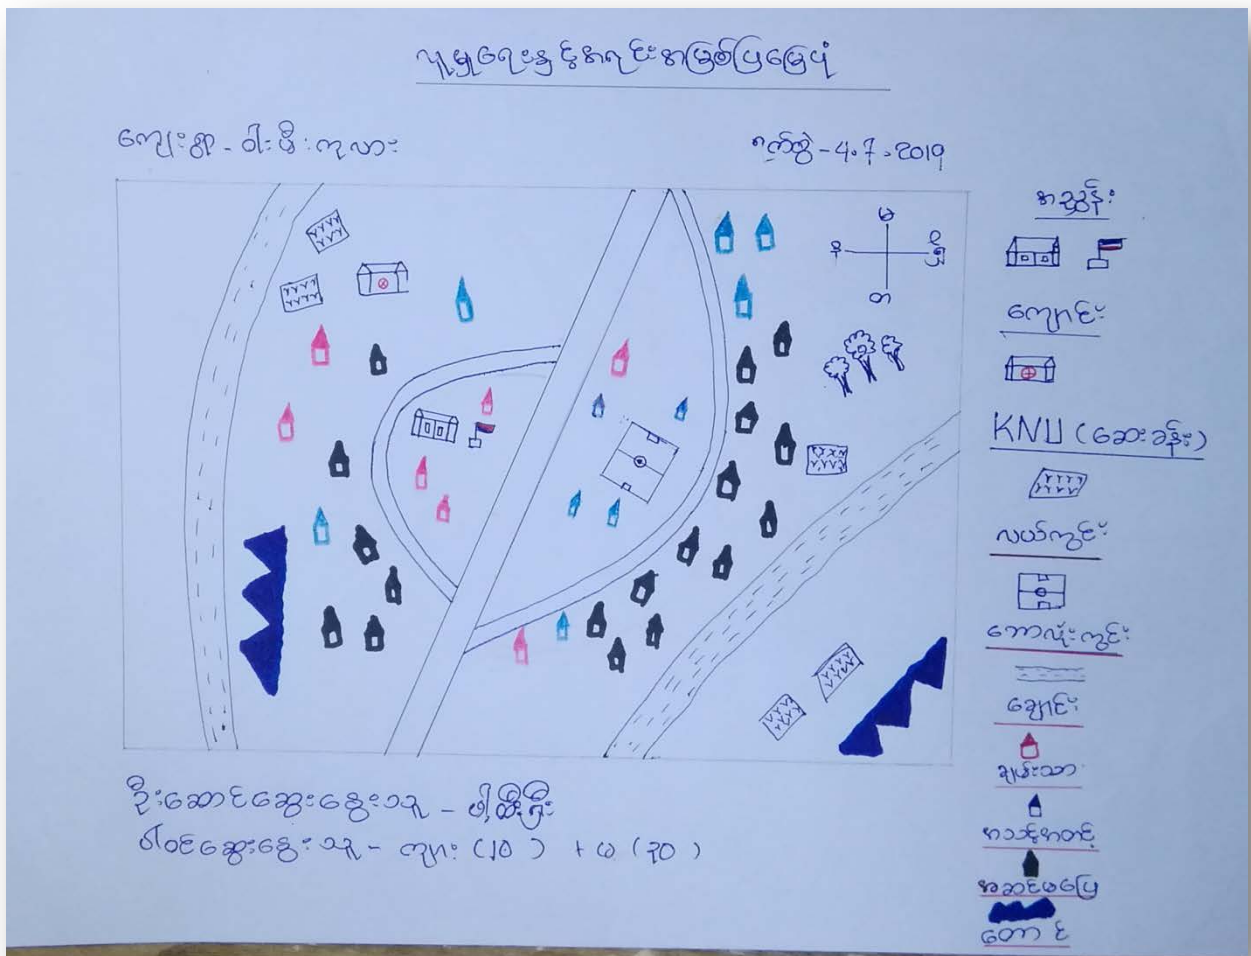 လူမှုရေးနှင့်အရင်းအမြစ်ပြမြေပုံ
ကျေးရွာ - ဝါးဖီးကုလား
ရက်စွဲ - 4.7.2019
အညွှန်း
မ
န
တ
ကျောင်း
KNU (ဆေးခန်း)
လယ်ကွင်း
ဘောလုံးကွင်း
ချောင်း
ချမ်းသာ
အသင့်အတင့်
အဆင်မပြေ
တောင်
ဦးဆောင်ဆွေးနွေးသူ -
ပါဝင်ဆွေးနွေးသူ - ကျား (၂၀) + မ (၃၀)